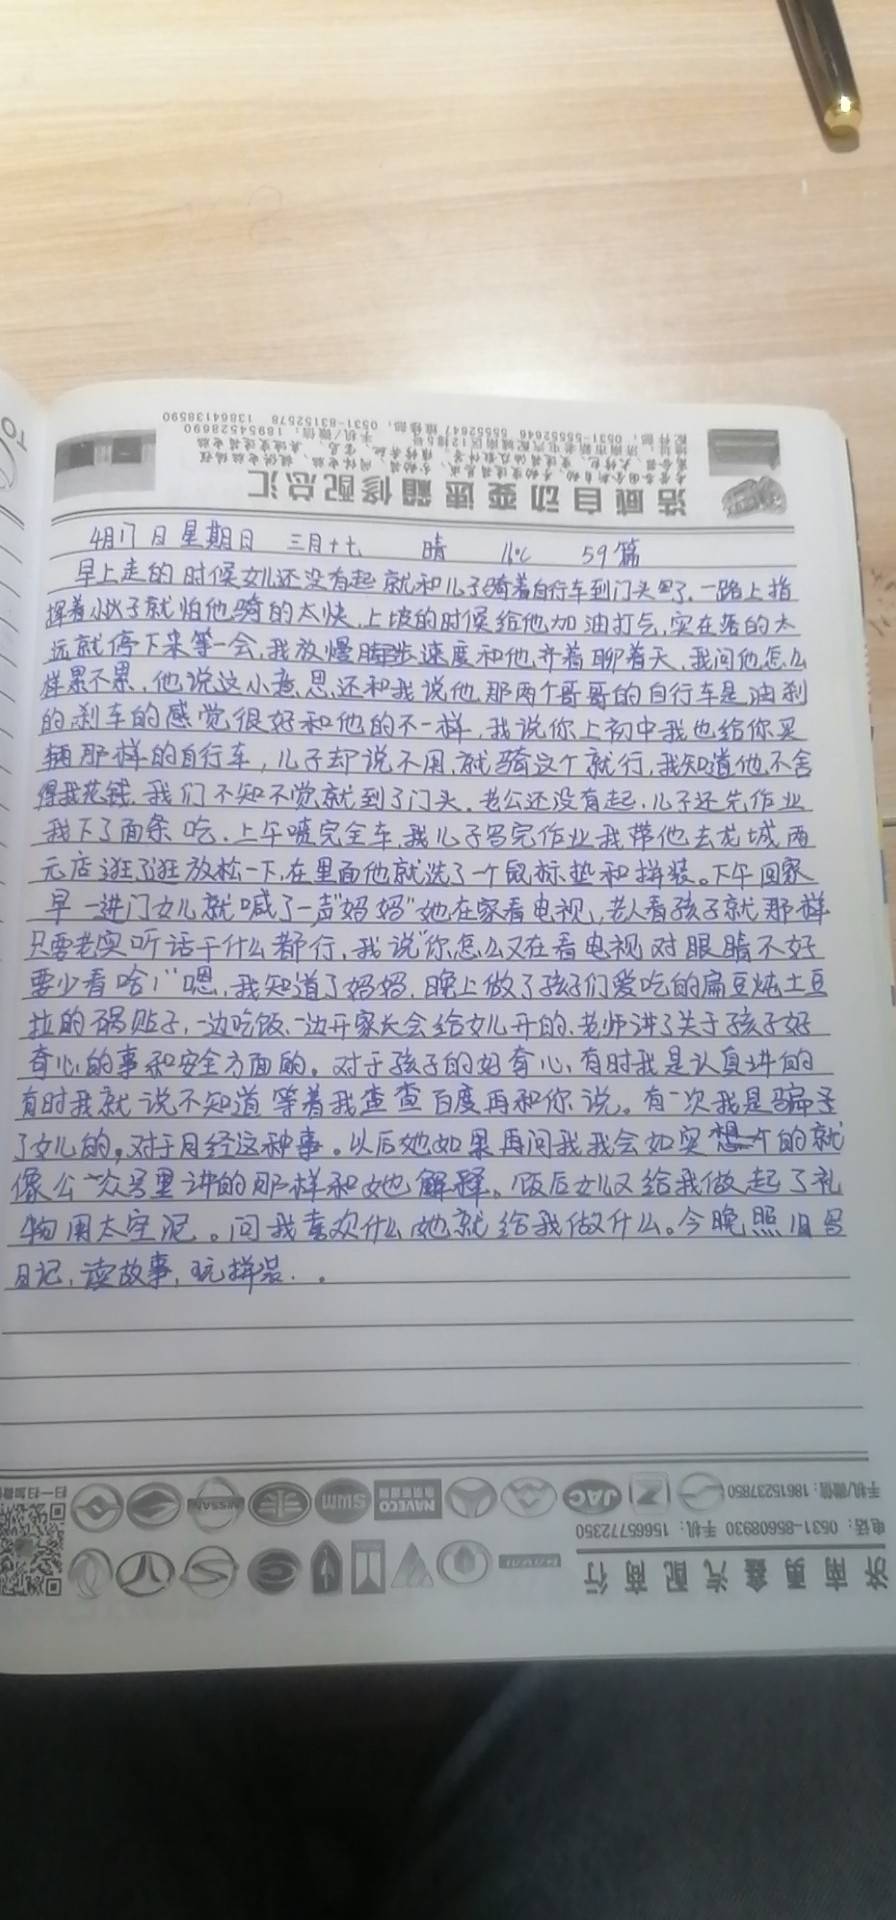 浩威自动变速箱修配总汇
0531-55552646 55552647 维修部：0531-83152578 13864138590
手机/微信：18954528690
4月17日星期日 三月十七 晴 16℃ 59篇
早上走的时候女儿还没有起就和儿子骑着自行车到门头里了.一路上指
挥着小伙子就怕他骑的太快,上坡的时候给他加油打气,实在落的太
远就停下来等一会,我放慢脚步速度和他齐着聊着天,我问他怎么
样累不累,他说这小意思,还和我说他那两个哥哥的自行车是油刹
的刹车的感觉很好和他的不一样,我说你上初中我也给你买
辆那样的自行车,儿子却说不用,就骑这个就行,我知道他不舍
得我花钱,我们不知不觉就到了门头,老公还没有起,儿子还先作业
我下了面条吃.上午喷完全车,我儿子写完作业我带他去龙城两
元店逛了逛放松一下,在里面他就选了一个鼠标垫和拼装。下午回家
早一进门女儿就喊了一声"妈妈"她在家看电视,老人看孩子就那样
只要老实听话干什么都行,我说"你怎么又在看电视对眼睛不好
要少看啥!""嗯,我知道了妈妈,晚上做了孩子们爱吃的扁豆炖土豆
拉的锅贴子,一边吃饭、一边开家长会给女儿开的,老师讲了关于孩子好
奇心的事和安全方面的。对于孩子的好奇心,有时我是认真讲的
有时我就说不知道等着我查查百度再和你说。有一次我是骗
了女儿的,对于月经这种事。以后她如果再问我我会如实的就
像公众号里讲的那样和她解释。饭后女儿又给我做起了礼
物用太空泥。问我喜欢什么她就给我做什么。今晚照旧写
日记,读故事,玩拼装..
扫一扫加微信
NISSAN SWM NAVECO JAC
手机/微信：18615237850
电话：0531-85608930 手机：15665772350
济南勇鑫汽配商行